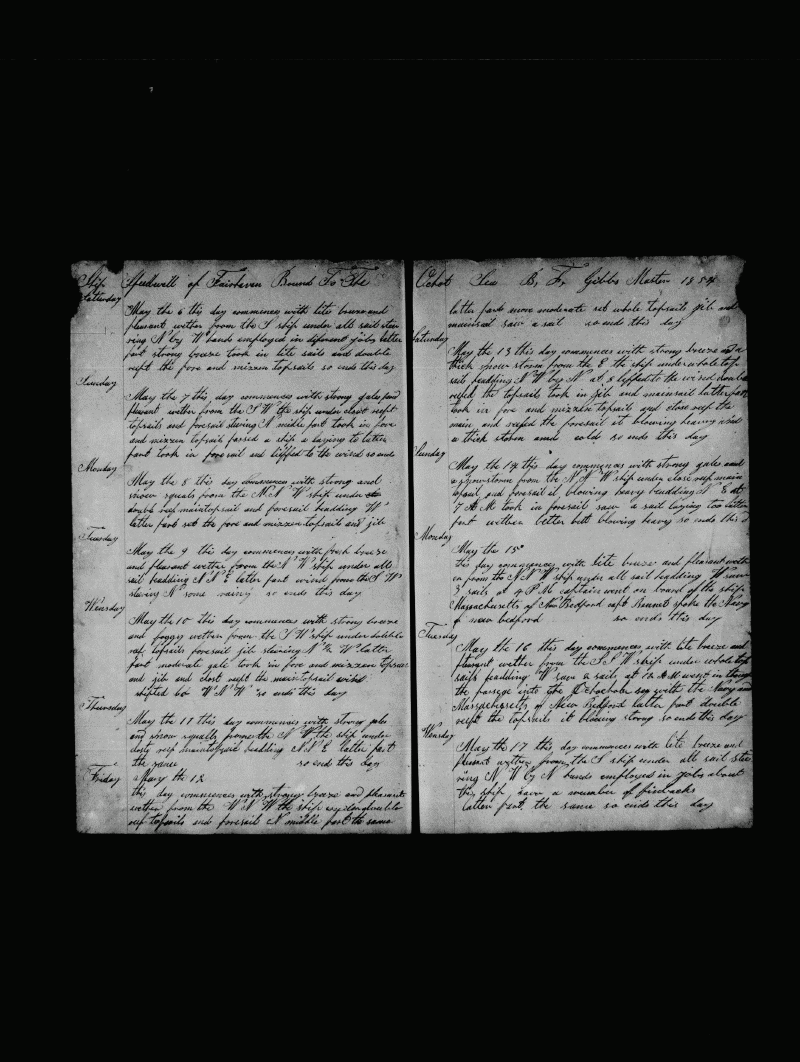 Ship Speedwell of Fairhaven Bound To The
Saturday
May the 6 this day commences with lite breeze and
plesant wether from the S ship under all sail stee
ring N by W hands employed in diferent jobs latter
part strong breeze took in lite sails and double
reept the fore and mizzen topsails so ends this day
Sunday
May the 7 this day commences with strong gales and
plesant wether from the S W the ship under close reept
topsails and foresail stering N middle part took in fore
and mizzen topsail passed a ship a laying to latter
part took in foresail and luffed to the wind so ends
Monday
May the 8 this day commences with strong and
snow squals from the N N W ship under
double reep maintopsail and foresail headding W
latter part set the fore and mizzen topsail and jib
Tuesday
May the 9 this day commences with fresh breeze
and plesant wether from the N W ship under all
sail headding N N E latter part wind from the S W
stering N some rainy so ends this day
Wensday
May the 10 this day commences with strong breeze
and foggy wether from the S W ship under dobble
reep topsails foresail jib steering N W latter
part moderate gale took in fore and mizzen topsail
and jib and clost reept the main topsail wind
shifted to W N W so ends this day
Thursday
May the 11 this day commences with strong gales
and snow squalls from the N W the ship under
closty reep maintopsail headding N N E latter part
the same so ends this day
Friday
May the 12
this day commences with strong breeze and pleasant
wether from the W N W the ship under double
reep topsails and foresail N middle part the same
Ochot Sea B, F, Gibbs Master 1854
latter part more moderate set whole topsails jib and
mainsail saw a sail so ends this day
Saturday
May the 13 this day commences with strong breeze and a
thick snow storm from the E the ship under whole top
sail headding N W by N at 8 luffed to the wind double
reeped the topsails took in jib and mainsail latter part
took in fore and mizzen topsails and close reep the
main and reefed the foresail it blowing heavy and
a thick storm and cold so ends this day
Sunday
May the 14 this day commences with strong gales and
a snowstorm from the N W ship under close reep main
topsail and foresail it blowing heavy headding N E at
7 A M took in foresail saw a sail laying too latter
part wether better but blowing heavy so ends this d
Monday
May the 15
this day commences with lite breeze and plesant weth
er from the N N W ship under all sail headding W saw
3 sails at 4 P M captain went on board of the ship
Massachusetts of New Bedford capt Bennet spoke the Navy
of new bedford so ends this day
Tuesday
May the 16 this day commences with lite breeze and
plesant wether from the S S W ship under whole top
sails headding W saw a sails at 12 A M went in through
the passage into the Ochochole sea with the Navy and
Massachusetts of New Bedford latter part double
reept the topsails it blowing strong so ends this day
Wensday
May the 17 this day commences with lite breeze and
plesant wether from the S ship under all sail stee
ring N W by N hands employed in jobs about
the ship saw a number of finbacks
latter part the same so ends this day